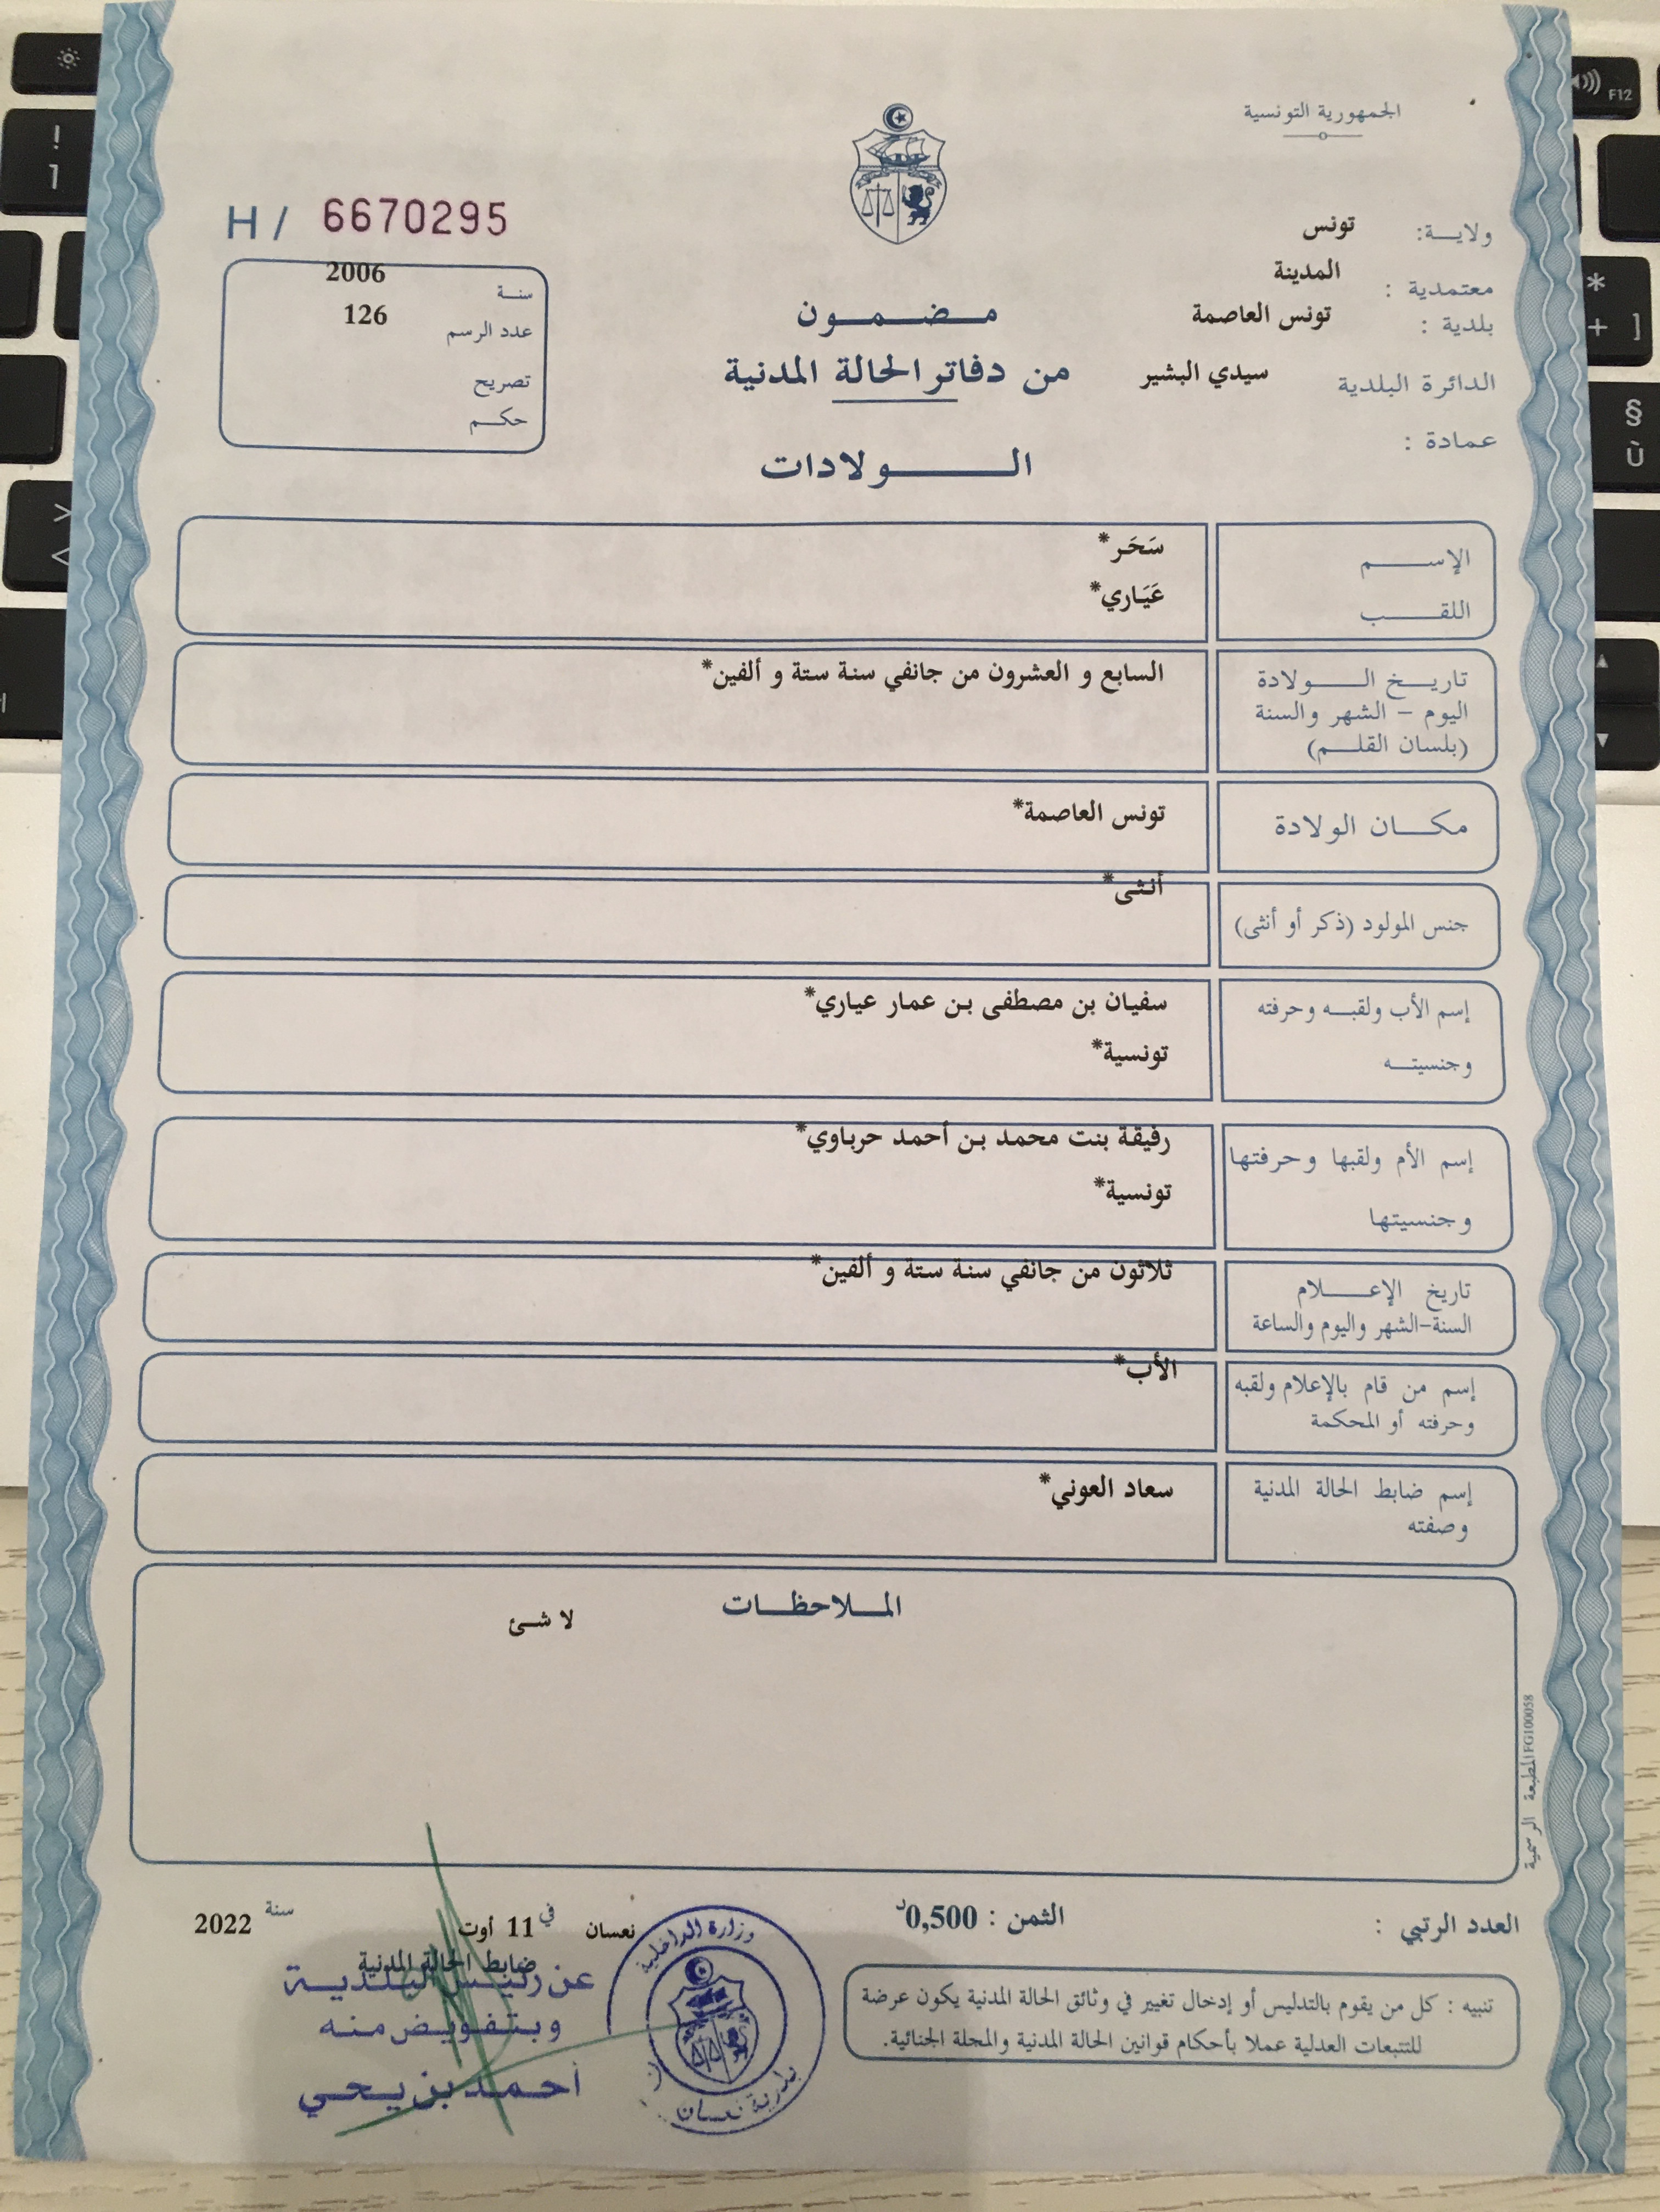 الجمهورية التونسية
ولاية: تونس
معتمدية : المدينة
بلدية : تونس العاصمة
الدائرة البلدية سيدي البشير
عمادة :
H / 6670295
سنة 2006
عدد الرسم 126
تصريح
حكم
مضمون
من دفاتر الحالة المدنية
الولادات
الإسم سَحَر*
اللقب عَيَاري*
تاريخ الولادة السابع و العشرون من جانفي سنة ستة و ألفين*
اليوم - الشهر والسنة
(بلسان القلم)
مكان الولادة تونس العاصمة*
جنس المولود (ذكر أو أنثى) أنثى*
إسم الأب ولقبه وحرفته سفيان بن مصطفى بن عمار عياري*
وجنسيته تونسية*
إسم الأم ولقبها وحرفتها رفيقة بنت محمد بن أحمد حرباوي*
وجنسيتها تونسية*
تاريخ الإعلام ثلاثون من جانفي سنة ستة و ألفين*
السنة-الشهر واليوم والساعة
إسم من قام بالإعلام ولقبه الأب*
وحرفته أو المحكمة
إسم ضابط الحالة المدنية سعاد العوني*
وصفته
الملاحظات
لا شئ
المطبعة الرسمية FG100058
العدد الرتبي :
الثمن : 0,500د
نعسان في 11 أوت سنة 2022
ضابط الحالة المدنية
عن رئيس البلدية
وبتفويض منه
أحمد بن يحي
وزارة الداخلية
بلدية نعسان
تنبيه : كل من يقوم بالتدليس أو إدخال تغيير في وثائق الحالة المدنية يكون عرضة
للتتبعات العدلية عملا بأحكام قوانين الحالة المدنية والمجلة الجنائية.
! 1
F12
*
+ ]
§
ù
>
<